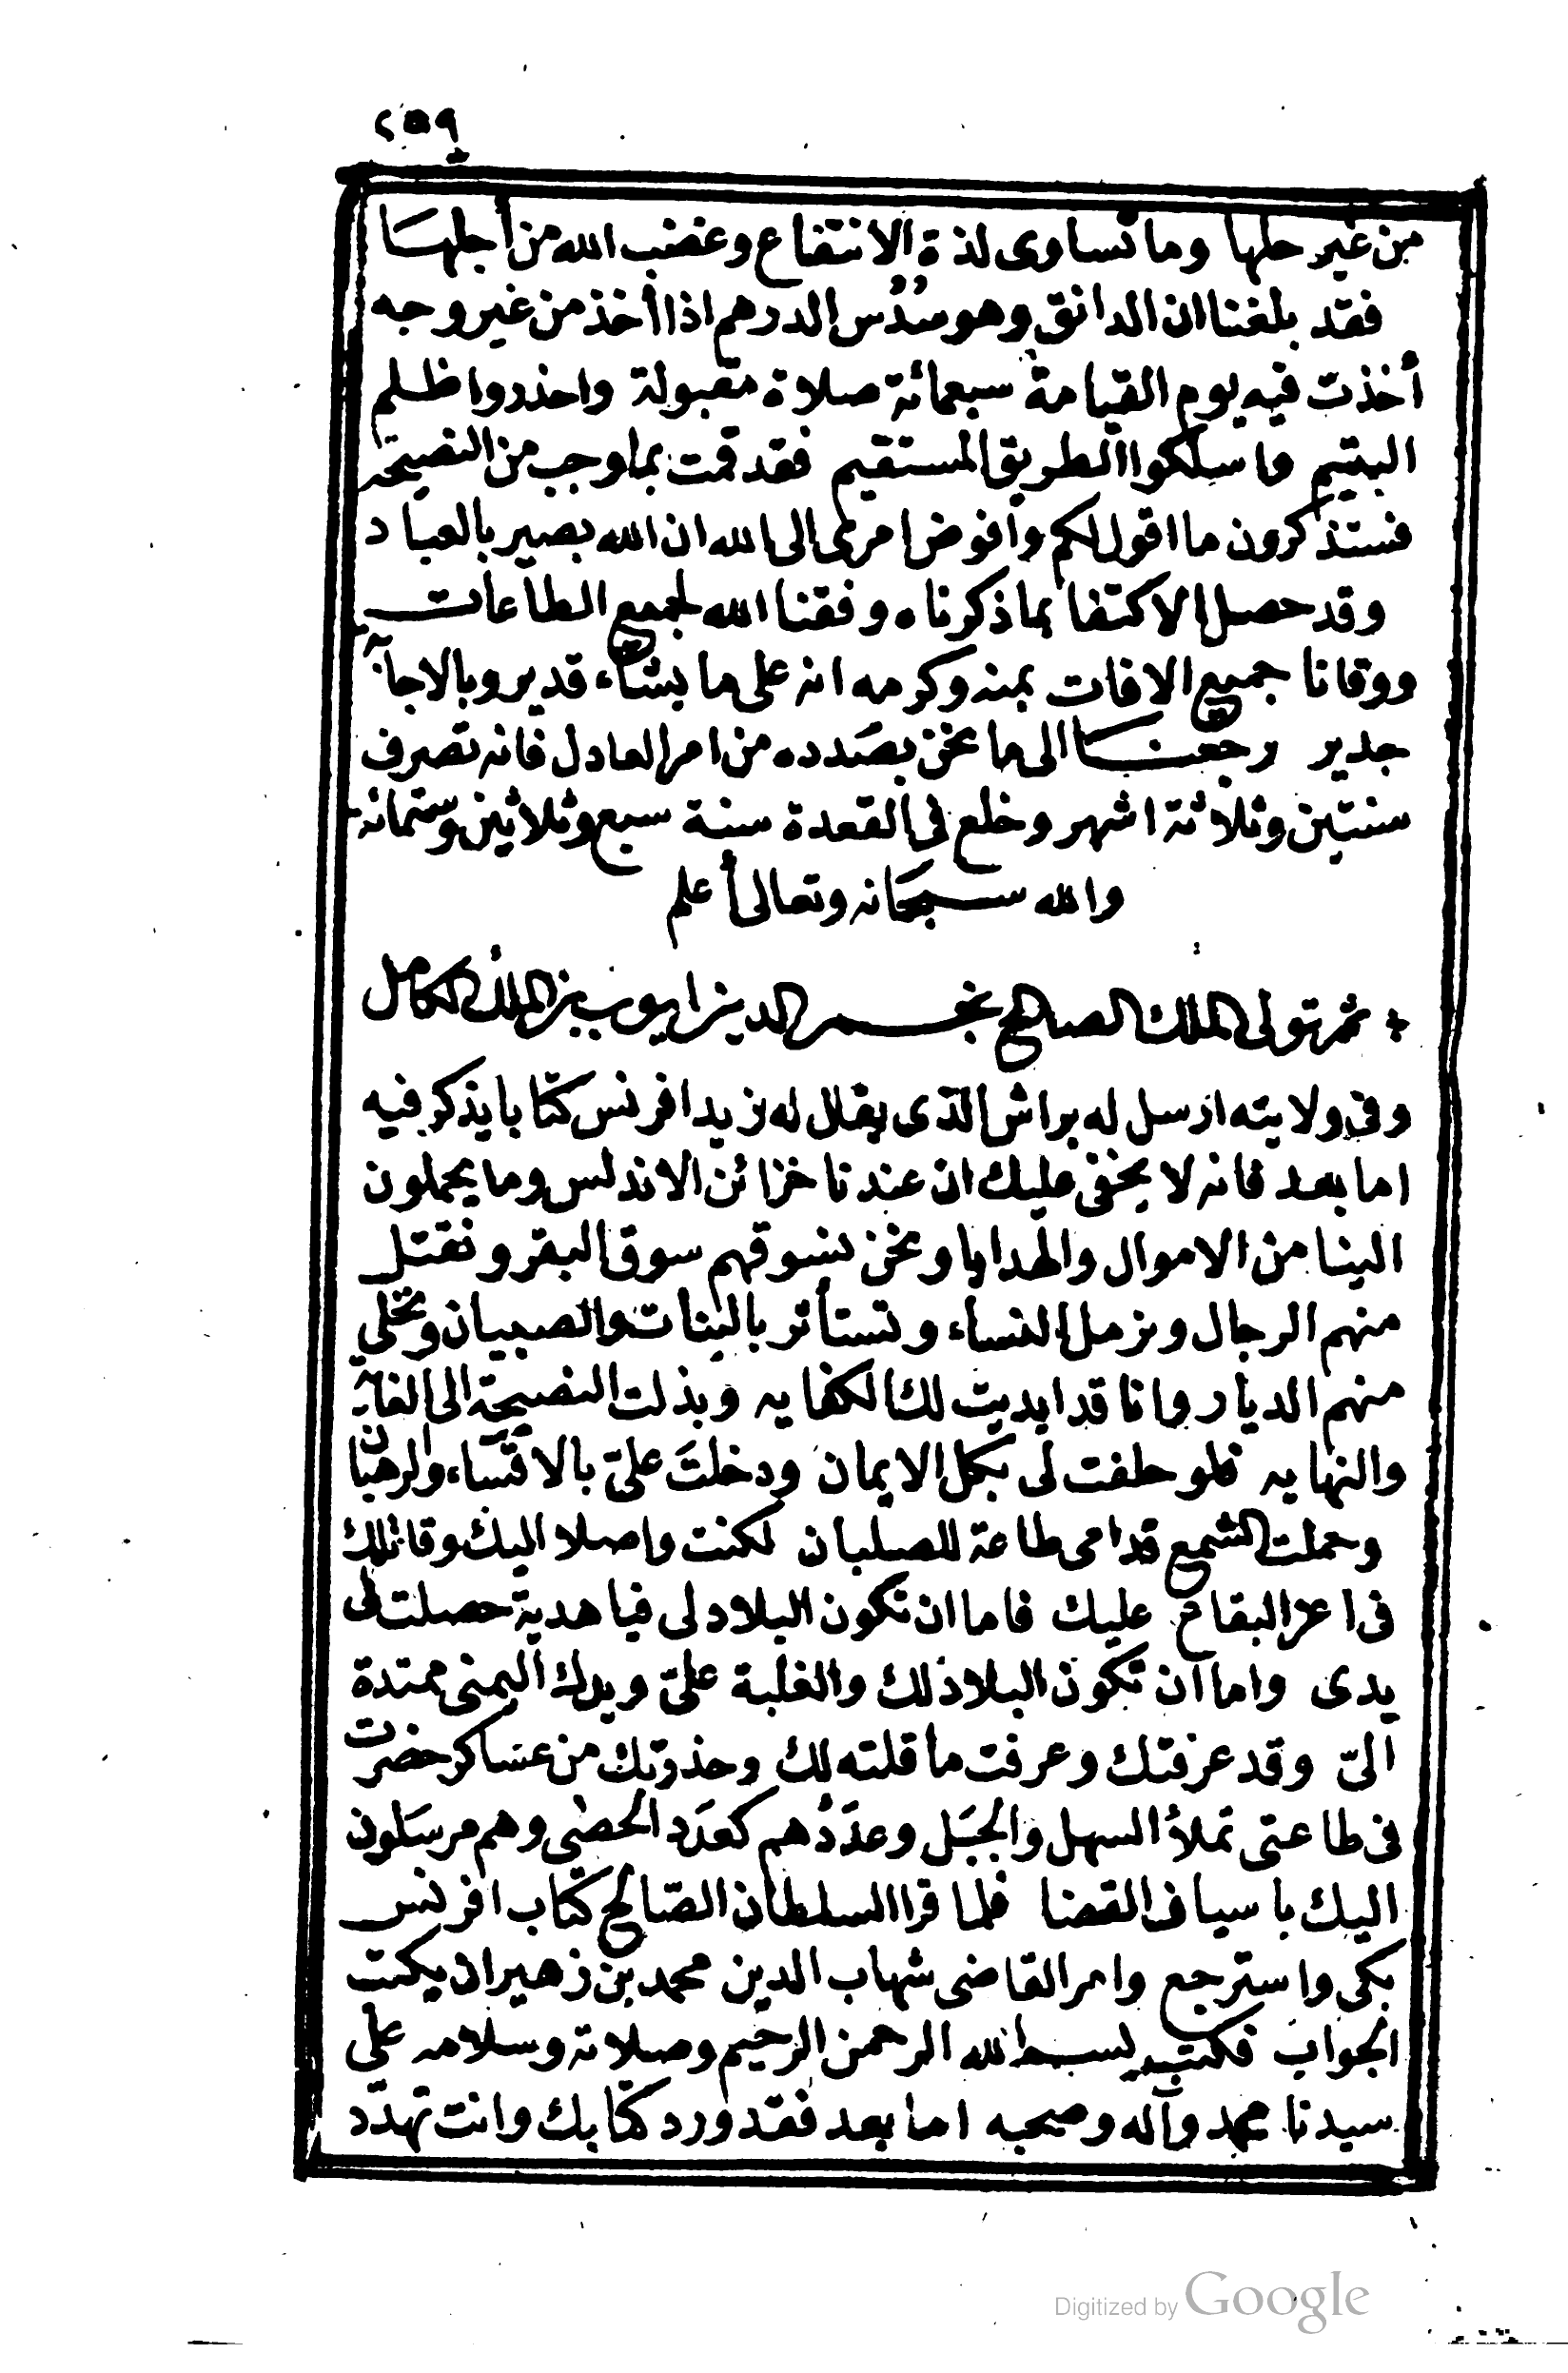 ٢٥٩
من غير حلها وما تساوى لذة الانتفاع وغضب الله من أجلها
فقد بلغنا ان الدانق وهو سُدُس الدرهم اذا أخذ من غير وجه
أخذت فيه يوم القيامة سبعمائة صلاة مقبولة واحذروا ظلم
اليتيم واسلكوا الطريق المستقيم فقد قمت بما وجب من النصيحة
فستذكرون ما اقول لكم وأفوض امرى الى الله ان الله بصير بالعباد
وقد حصل الاكتفا بما ذكرناه وفقنا الله لجميع الطاعات
ووقانا جميع الافات بمنه وكرمه انه على ما يشاء قدير وبالاجابة
جدير رجعنا الى ما نحن بصدده من امر العادل فانه تصرف
سنتين وثلاثة اشهر وخلع فى القعدة سنة سبع وثلاثين وستمائة
والله سبحانه وتعالى أعلم
ثم تولى الملك الصالح نجم الدين ايوب بن الملك الكامل
وفى ولايته ارسل له براش الذى يقال له زيد افرنس كتابا يذكر فيه
اما بعد فانه لا يخفى عليك ان عندنا خزائن الاندلس وما يحملون
الينا من الاموال والهدايا ونحن نسوقهم سوق البقر ونقتل
منهم الرجال ونرمل النساء ونستأثر بالبنات والصبيان ونخلي
منهم الديار وانا قد ابديت لك الكفايه وبذلت النصيحة الى الغاية
والنهايه فلو حلفت لى بكل الايمان ودخلتَ علىّ بالاقساء والرهبان
وحملت الشمع قدامى طاعة للصلبان لكنت واصلا اليك وقاتلك
فى اعز البقاع عليك فاما ان تكون البلاد لى فيا هدية حصلت فى
يدى واما ان تكون البلاد لك والغلبة علىّ ويدك اليمنى ممتدة
الىّ وقد عرفتك وعرفت ما قلته لك وحذرتك من عساكر حضرت
فى طاعتى تملأ السهل والجبَل وعدَدُهم كعدَد الحصى وهم مرسَلون
اليك باسياف القضا فلما قرا السلطان الصالح كتاب افرنس
بكى واسترجع وامر القاضى شهاب الدين محمد بن زهير ان يكتب
الجواب فكتب بسم الله الرحمن الرحيم وصلاته وسلامه على
سيدنا محمد وآله وصحبه اما بعد فقد ورد كتابك وانت تهدّد
Digitized by Google